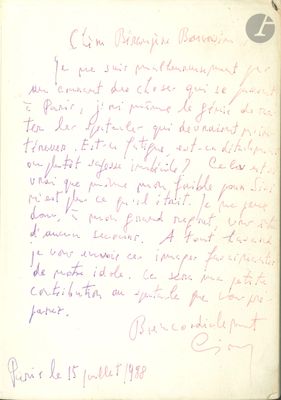 Chère Bérengère Bonvoisin,
Je ne suis malheureusement pas
au courant des choses qui se passent
à Paris, j'ai même le génie de ra-
ter les spectacles qui devraient m'in-
téresser. Est-ce fatigue, est-ce
ou plutôt sagesse imbécile? Cela est si
vrai que même mon faible pour Sissi
n'est plus ce qu'il était. Je ne peux
donc, à mon grand regret, vous être
d'aucun secours. A tout hasard
je vous envoie ces images
de notre idole. Ce sera ma petite
contribution au spectacle que vous pré-
parez.
Bien cordialement
Cioran
Paris le 15 juillet 1988